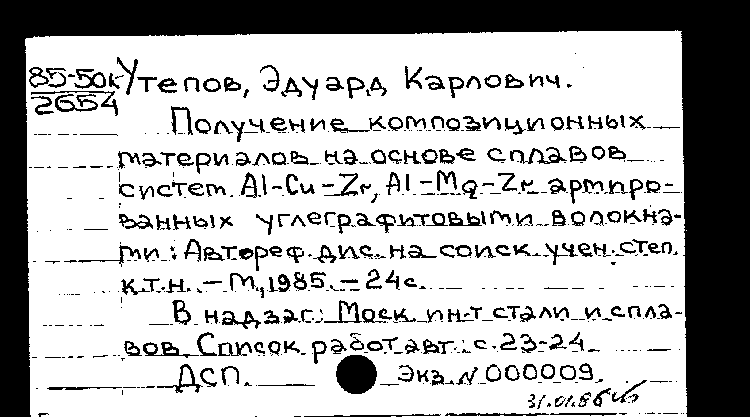 85-50к Утепов, Эдуард Карлович.
2654
Получение композиционных
материалов на основе сплавов
систем Al-Cu-Zr, Al-Mg-Zr армиро-
ванных углеграфитовыми волокна-
ми : Автореф. дис. на соиск. учен. степ.
к.т.н. – М, 1985. – 24с.
В надзаг.: Моск. ин-т стали и спла-
вов. Список работ авт.: с. 23-24
ДСП. Экз. N 000009.
31.01.86